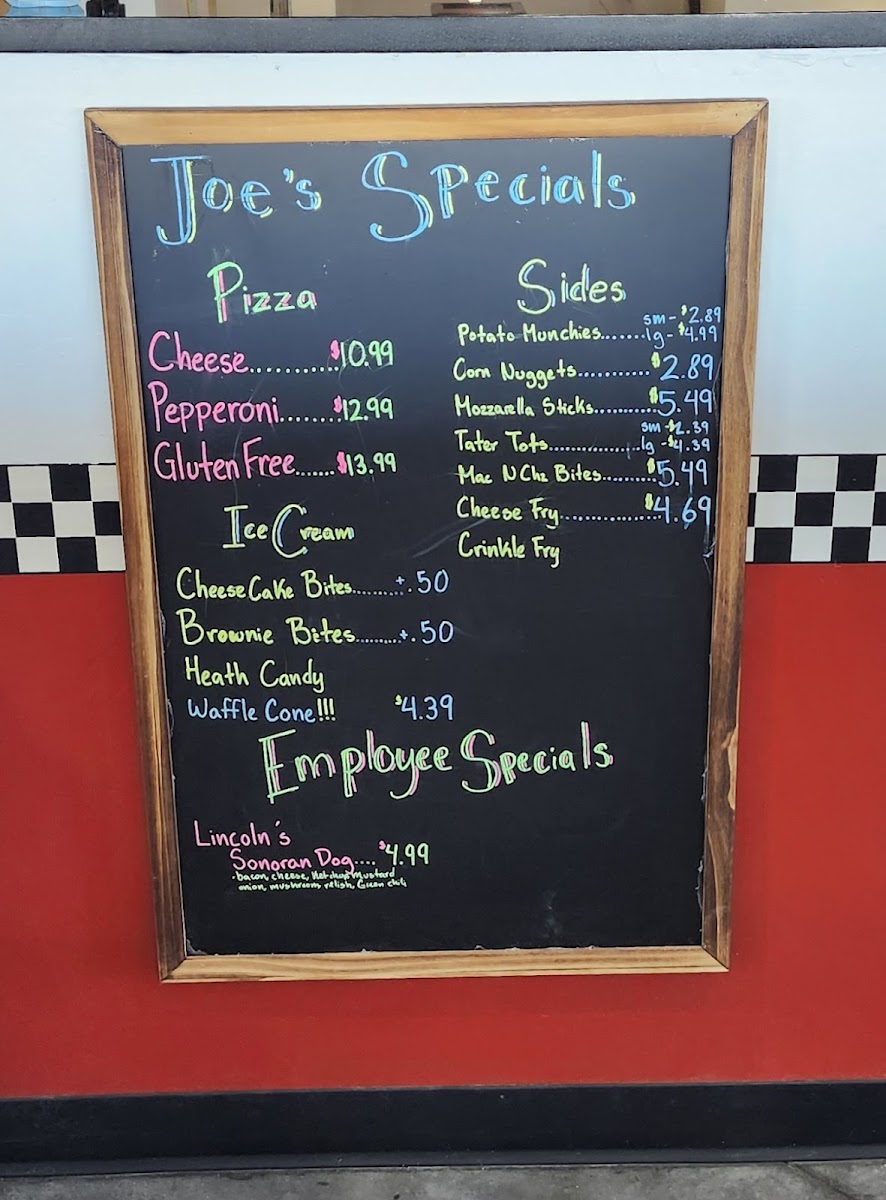 Joe's Specials
Pizza
Cheese..........$10.99
Pepperoni.......$12.99
Gluten Free......$13.99
Ice Cream
CheeseCake Bites........+.50
Brownie Bites........+.50
Heath Candy
Waffle Cone!!! $4.39
Sides
sm-$2.89
Potato Munchies.......lg-$4.99
Corn Nuggets...........$2.89
Mozzarella Sticks..........$5.49
sm-$2.39
Tater Tots..............lg-$4.39
Mac N Chz Bites.........$5.49
Cheese Fry.............$4.69
Crinkle Fry
Employee Specials
Lincoln's
Sonoran Dog....$4.99
-bacon, cheese, Ketchup, Mustard
onion, mushroom, relish, Green chili